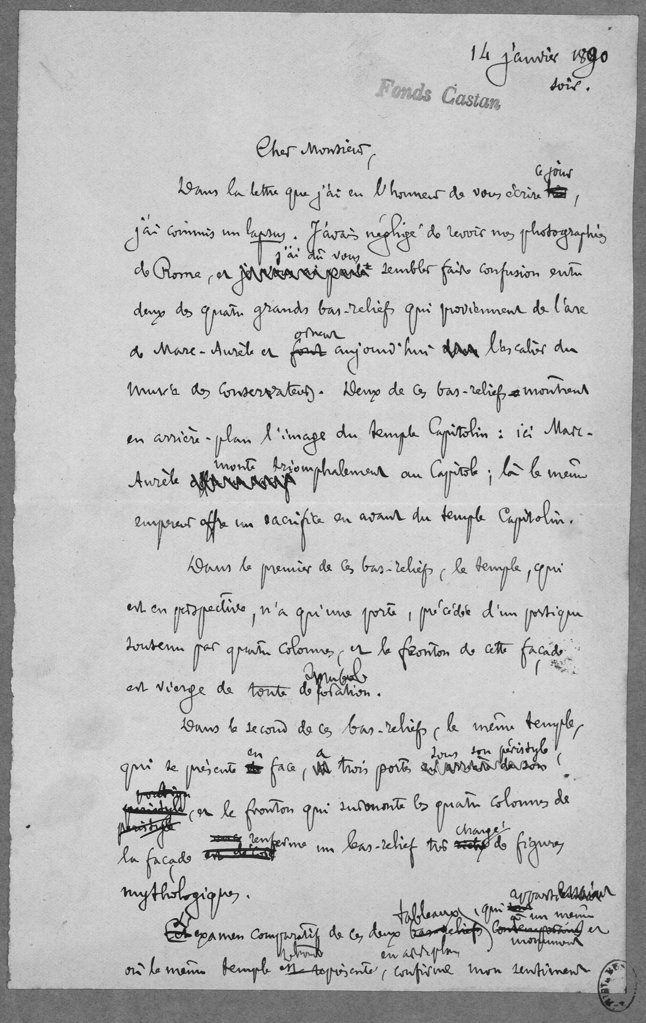 14 janvier 1890
soir.
Fonds Castan
Cher Monsieur,
ce jour
Dans la lettre que j'ai eu l'honneur de vous écrire ,
j'ai commis un lapsus. J'avais négligé de revoir mes photographies
j'ai dû vous
de Rome, et sembler faire confusion entre
deux des quatre grands bas-reliefs qui proviennent de l'arc
ornent
de Marc-Aurèle et font aujourd'hui dans l'escalier du
musée des Conservateurs. Deux de ces bas-reliefs montrent
en arrière-plan l'image du temple Capitolin : ici Marc-
monte triomphalement
Aurèle au Capitole ; là le même
empereur offre un sacrifice en avant du temple Capitolin.
Dans le premier de ces bas-reliefs, le temple, qui
est en perspective, n'a qu'une porte, précédée d'un portique
soutenu par quatre colonnes, et le fronton de cette façade
est vierge de toute décoration.
Dans le second de ces bas-reliefs, le même temple,
en a sous son péristyle,
qui se présente de face, trois portes
portique
péristyle, et le fronton qui surmonte les quatre colonnes de
péristyle
renferme chargé
la façade est décoré un bas-relief très riche de figures
mythologiques.
tableaux, qui
à un même
monument
examen comparatif de ces deux bas-reliefs et
en arrière plan
où le même temple est représenté, confirme mon sentiment